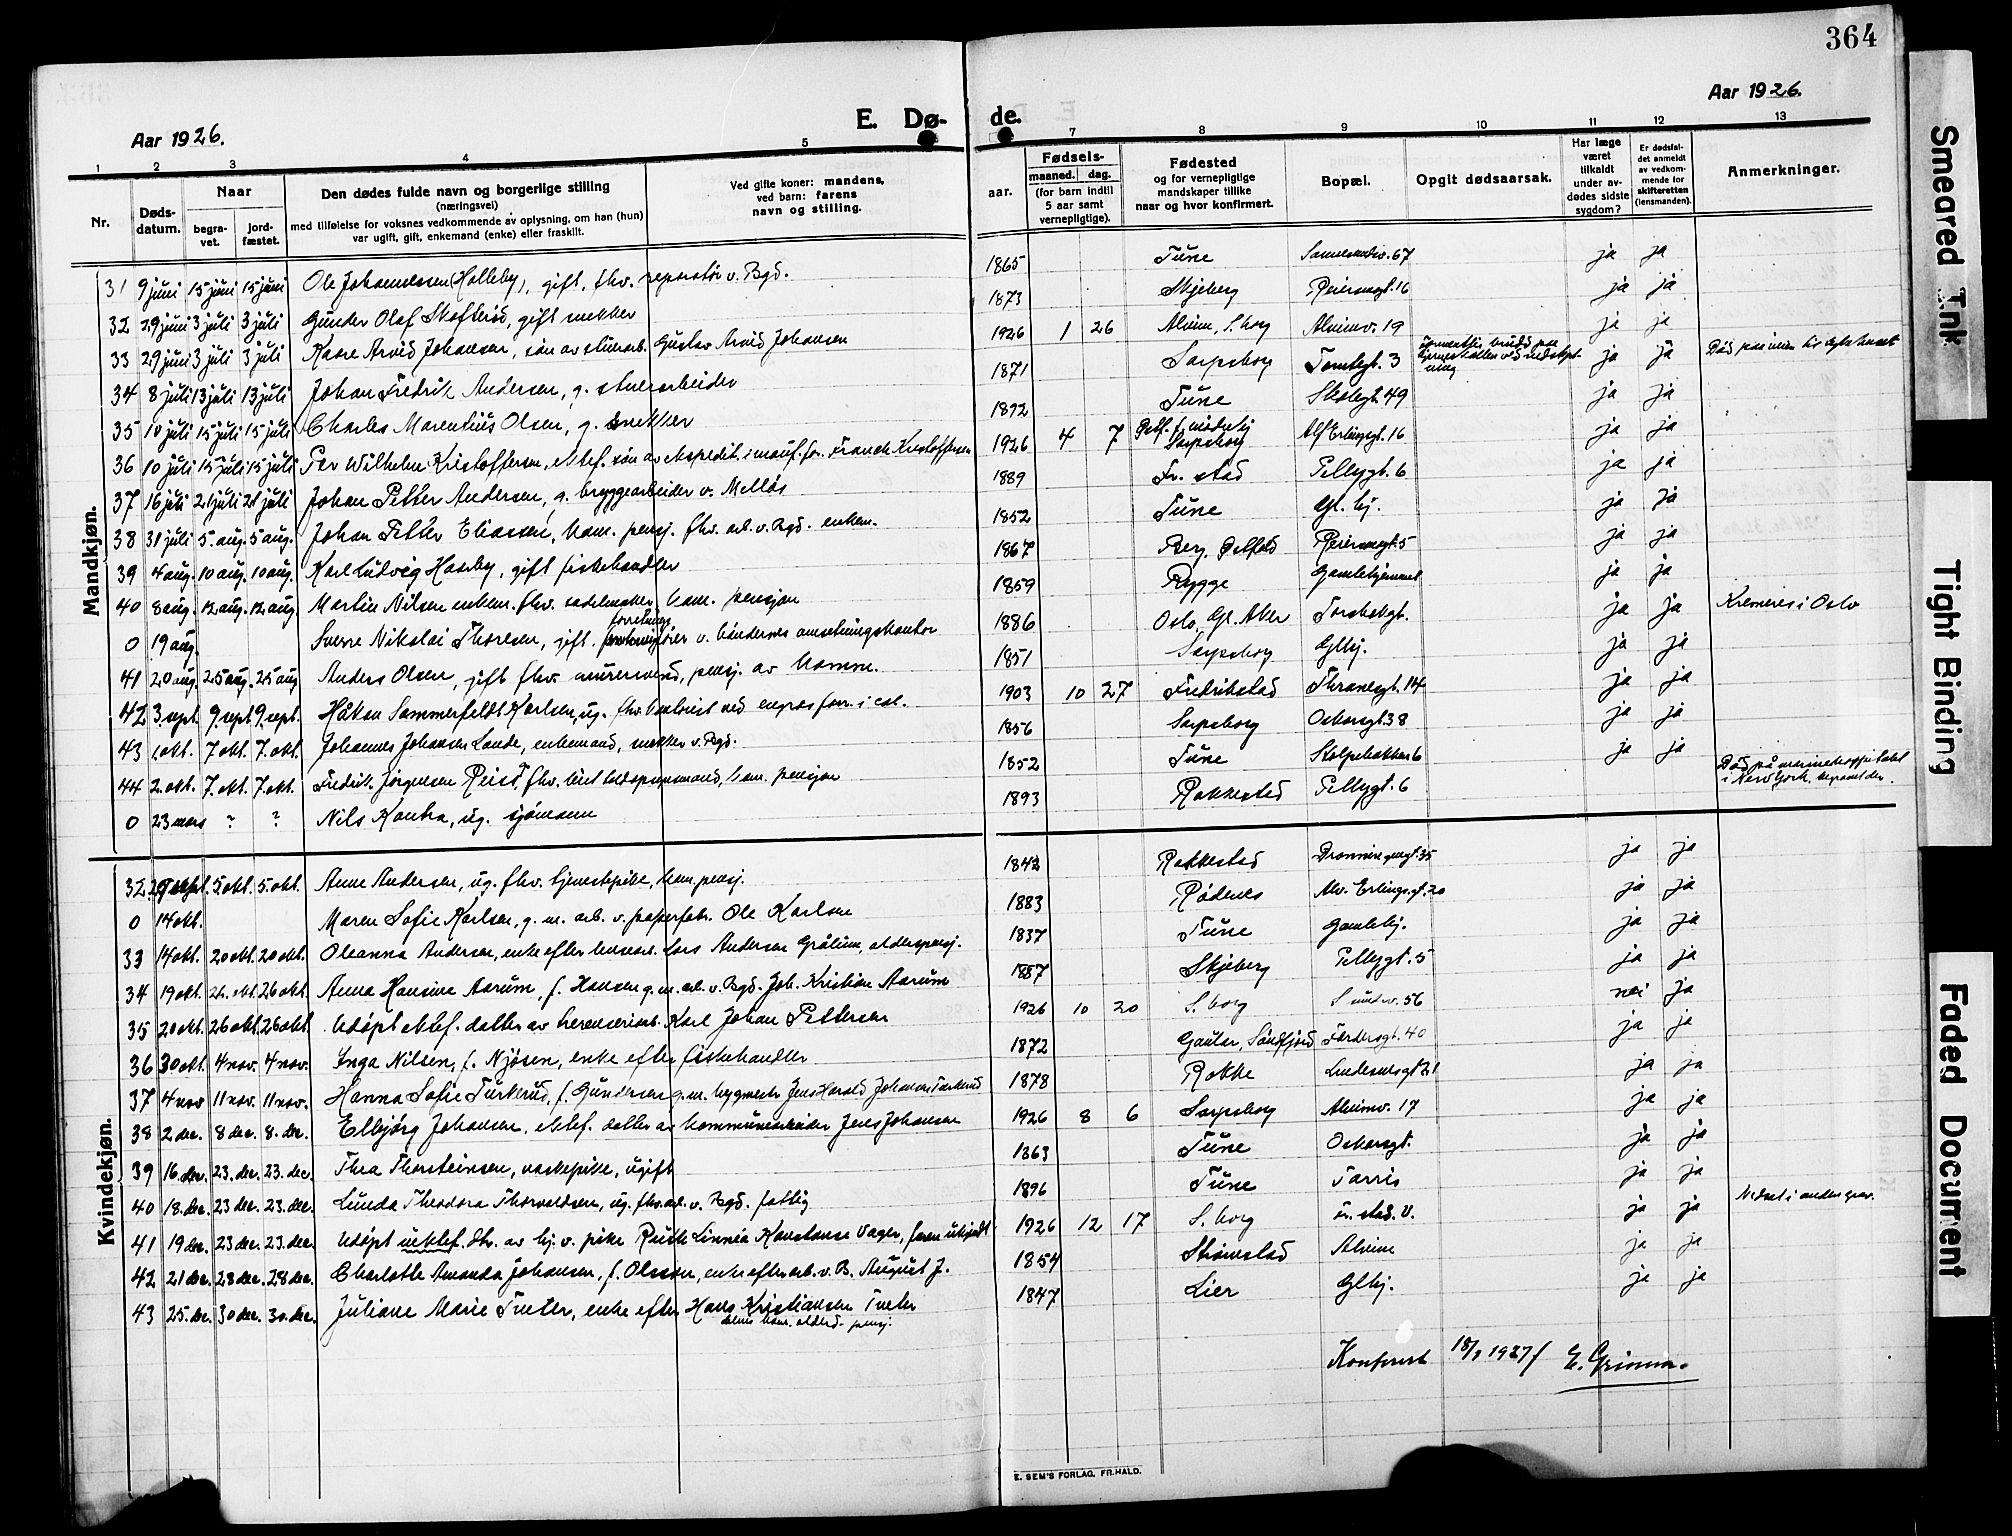 364
Aar 1926.
Aar 1926.
E. Dø- de.
1 2 3 4 5 7 8 9 10 11 12 13
Nr.
Døds-
datum.
Naar
begra-
vet.
jord-
fæstet.
Den dødes fulde navn og borgerlige stilling
(næringsvei)
med tilføielse for voksnes vedkommende av oplysning, om han (hun)
var ugift, gift, enkemand (enke) eller fraskilt.
Ved gifte koner: mandens,
ved barn: farens
navn og stilling.
aar.
Fødsels-
maaned. dag.
(for barn indtil
5 aar samt
vernepligtige).
Fødested
og for vernepligtige
mandskaper tillike
naar og hvor konfirmert.
Bopæl.
Opgit dødsaarsak.
Har læge
været
tilkaldt
under av-
dødes sidste
sygdom?
Er dødsfal-
det anmeldt
av vedkom-
mende for
skifteretten
(lensmanden).
Anmerkninger.
Mandkjøn.
31 9 juni 15 juni 15 juni Ole Johannessen (Holleby), gift, fhv. reparatør v. Bgd. 1865 Tune 67 ja ja
32 29 juni 3 juli 3 juli Gunder Olaf Skofterød, gift snekker 1873 Skjeberg Reiersgt. 16 ja ja
33 29 juni 3 juli 3 juli Kaare Arvid Johansen, søn av stuerarb. Gustav Arvid Johansen 1926 1 26 Alvim, S.borg Alvimv. 19 ja ja
34 8 juli 13 juli 13 juli Johan Fredrik Andersen, g. stuerarbeider 1871 Sarpsborg Tomtegt. 3 ja ja
35 10 juli 15 juli 15 juli Charles Marentius Olsen, g. snekker 1892 Tune Skolegt. 49 ja ja
36 10 juli 15 juli 15 juli Per Wilhelm Kristoffersen, ektef. søn av ekspedit. i manuf. for. Kristoffersen 1926 4 7 Sarpsborg Alf Erlingsgt. 16 ja ja
37 16 juli 21 juli 21 juli Johan Petter Andersen, g. bryggearbeider v. Melløs 1889 Fr. stad Pellygt. 6 ja ja
38 31 juli 5. aug. 5 aug. Johan Petter Eliassen, kom. pensj. fhv. arb. v. Bgd. enkem. 1852 Tune Gl. hj. ja ja
39 4 aug. 10 aug. 10 aug. Karl Ludvig Haaby, gift fiskehandler 1867 Berg, Østfold Reiersgt. 5 ja ja
40 8 aug. 12 aug. 12 aug. Martin Nilsen enkem. fhv. sadelmaker, kom. pensjon 1859 Rygge Gamlehjemmet ja ja
0 19 aug. Sverre Nikolai Thoresen, gift. forretningsfører v. bøndernes omsetningskontor 1886 Oslo, Gl. Aker Torsbekgt. ja ja Kremeres i Oslo
41 20 aug. 25 aug. 25 aug Anders Olsen, gift fhv. murermand, pensj. av komm. 1851 Sarpsborg Glhj. ja ja
42 3. sept. 9. sept. 9. sept. Håkon Sommerfeldt Karlsen, ug. fhv. kontorist ved engros forr. i col. 1903 10 27 Fredrikstad Thranesgt. 14 ja ja
43 1 okt. 7 okt. 7. okt. Johannes Johansen Lande, enkemand, snekker v. Bgd. 1856 Sarpsborg Oskarsgt. 38 ja ja
44 2. okt. 7. okt. 7. okt. Fredrik Jørgensen Reist, fhv. kom. pensjon 1852 Tune Stolpebakken 6 ja ja
0 23 mars ? ? Nils Kantra, ug. sjømann 1893 Rakkestad Pellygt. 6 Død på marinehospitalet
i New York, begravet der.
Kvindekjøn.
32 29 sept. 5 okt. 5. okt. Anne Andersen, ug. fhv. tjenestepike, kom. pensj. 1842 Rakkestad Dronningensgt. 35 ja ja
0 14 okt. Maren Sofie Karlsen, g. m. arb. v. papirfabr. Ole Karlsen 1883 Rødenes Alv. Erlingsgt. 20 ja ja
33 14 okt. 20 okt. 20 okt. Oleanna Andersen, enke efter Lars Andersen Grålum, alderspensj. 1837 Tune Gamlehj. ja ja
34 19 okt. 26. okt. 26 okt. Anna Hansine Aarum, f. Hansen g. m. arb. v. Bgd. Joh. Kristian Aarum 1857 Skjeberg Pellygt. 5 ja ja
35 20 okt. 26 okt. 26 okt. Udøpt ektef. datter av Karl Johan Pettersen 1926 10 20 S. borg Sundv. 56 nei ja
36 30 okt. 4 nov. 4 nov. Inga Nilsen, f. Njøsen, enke efter fiskehandler 1872 Gaular, Søndfjord Færdersgt. 40 ja ja
37 4 nov 11 nov. 11 nov. Hanna Sofie Turkerud, f. Gundersen g. m. bygmester Jens Harald Johansen Turkerud 1878 Rokke Lindesnesgt 21 ja ja
38 2 dec. 8 dec. 8. dec. Elbjørg Johansen, ektef. datter av kommunearbeider Jens Johansen 1926 8 6 Sarpsborg Alvimv. 17 ja ja
39 16 dec. 23. dec. 23. dec. Thea Thorsteinsen, vaskepike, ugift 1863 Tune Oskarsgt. ja ja
40 18. dec. 23 dec. 23. dec. Linda Theodora Thorvaldsen, ug. fhv. arb. v. Bgd. fattig 1896 Tune Tarris ja ja
41 19 dec. 23 dec. 23. dec. Udøpt uektef. dtr. av hj. v. pike Ruth Linnéa Konstanse Vagen, faren ukjendt 1926 12 17 S. borg Fr. stad. V. ja ja Nedsat i anden grav.
42 21 dec. 28 dec. 28 dec. Charlotte Amanda Johansen, f. Olsson, enke efter arb. v. B. August J. 1854 Strømstad Alvim ja ja
43 25. dec. 30 dec. 30. dec. Juliane Marie Tveter, enke efter Hans Kristiansen Tveter 1847 Lier Glhj. ja ja
Konferert 18/1 1927 E. Grimm.
E. SEM'S FORLAG, FR.HALD.
Smeared Ink
Tight Binding
Faded Document